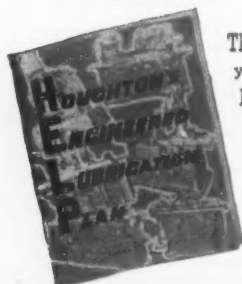 HOUGHTON'S
ENGINEERED
LUBRICATION
PLAN
Th
y